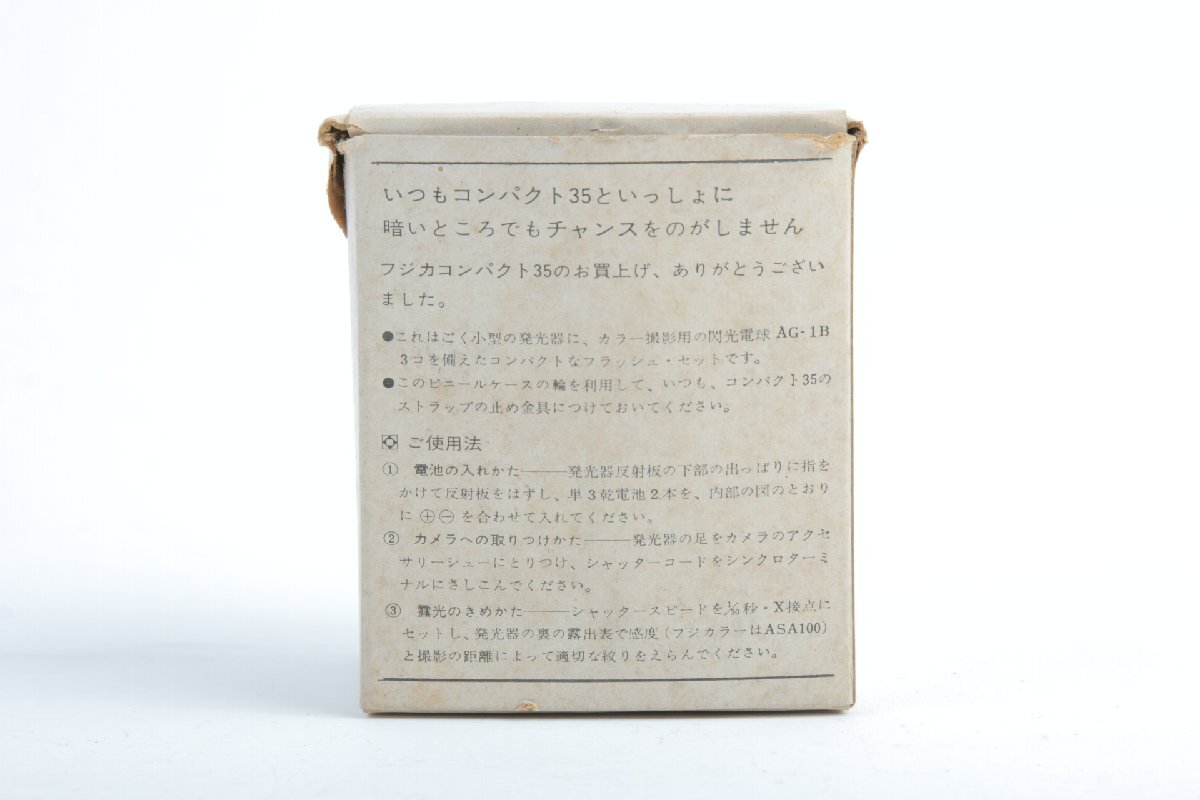 いつもコンパクト35といっしょに
暗いところでもチャンスをのがしません
フジカコンパクト35のお買上げ、ありがとうござい
ました。
●これはごく小型の発光器に、カラー撮影用の閃光電球 AG-1B
3コを備えたコンパクトなフラッシュ・セットです。
●このビニールケースの輪を利用して、いつも、コンパクト35の
ストラップの止め金具につけておいてください。
ご使用法
① 電池の入れかた——発光器反射板の下部の出っぱりに指を
かけて反射板をはずし、単3乾電池2本を、内部の図のとおり
に ⊕⊖ を合わせて入れてください。
② カメラへの取りつけかた——発光器の足をカメラのアクセ
サリーシューにとりつけ、シャッターコードをシンクロターミ
ナルにさしこんでください。
③ 露光のきめかた——シャッタースピードを1/30秒・X接点に
セットし、発光器の裏の露出表で感度(フジカラーはASA100)
と撮影の距離によって適切な絞りをえらんでください。